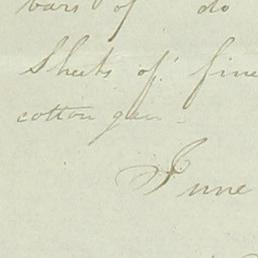 bars of do
Sheets of fine
cotton gun
June